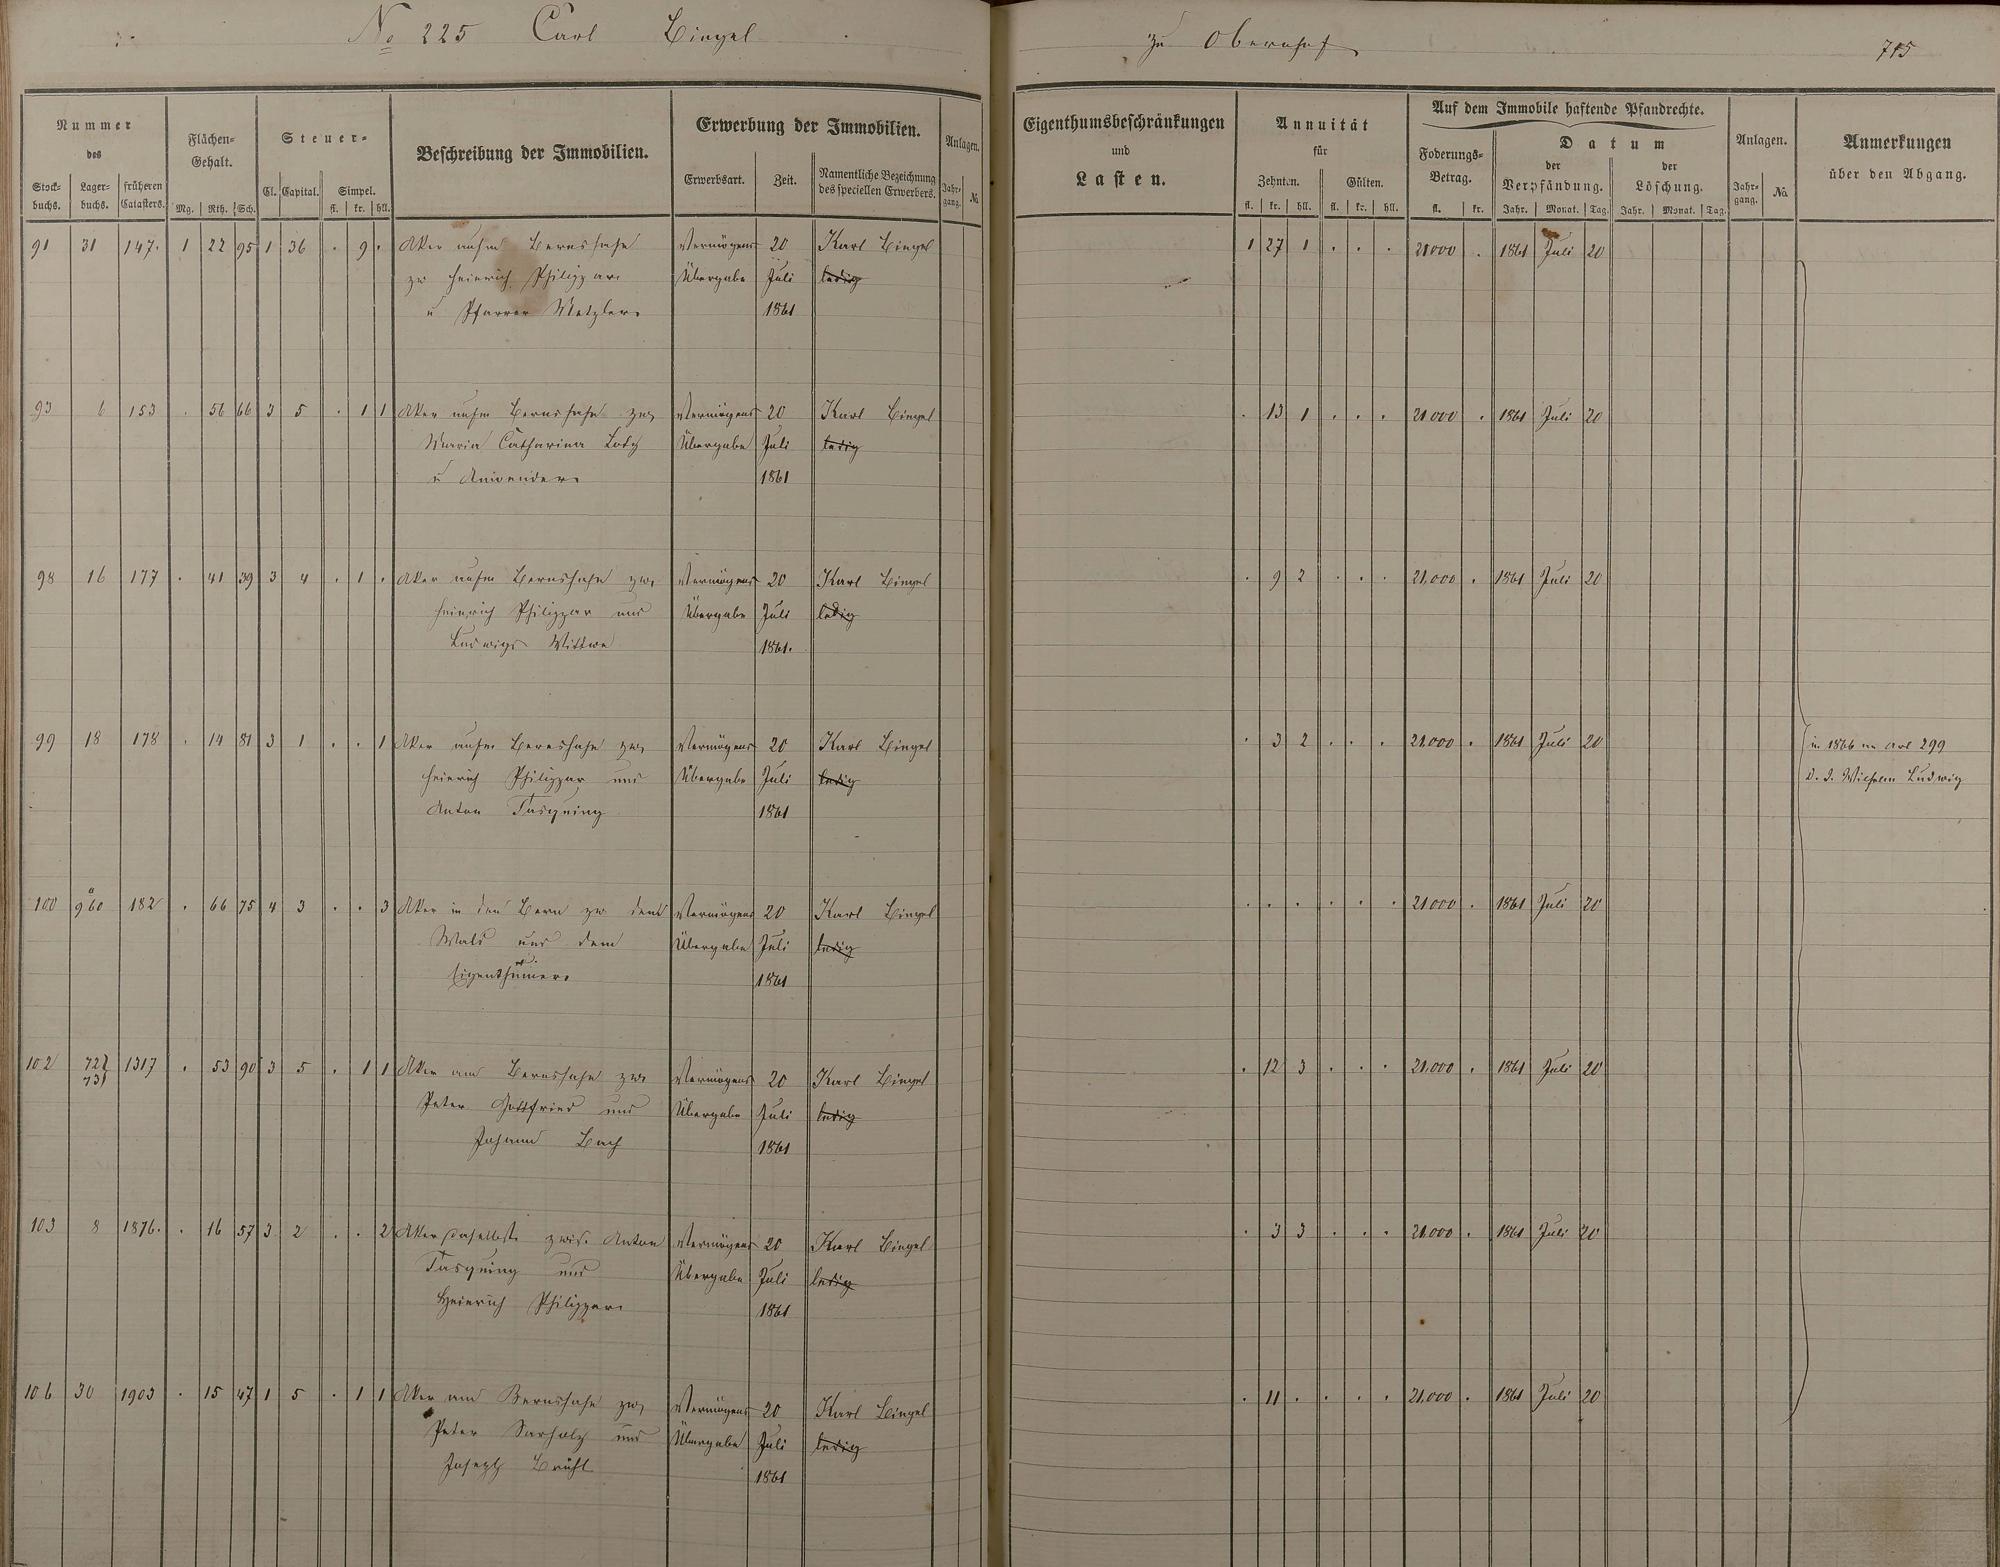 No 225 Carl Bingel
zu Obernhof 715
Nummer des
Stockbuchs. Lagerbuchs. früheren Catasters.
Flächen-Gehalt.
Mg. Rth. Sch.
Steuer-
Cl. Capital. Simpel.
fl. kr. hll.
Beschreibung der Immobilien.
Erwerbung der Immobilien.
Erwerbsart. Zeit. Namentliche Bezeichnung des speciellen Erwerbers.
Anlagen.
Jahrgang. No
Eigenthumsbeschränkungen
und
Lasten.
Annuität
für
Zehnten. Gülten.
fl. kr. hll. fl. kr. hll.
Auf dem Immobile haftende Pfandrechte.
Foderungs-Betrag.
fl. kr.
Datum
der Verpfändung. der Löschung.
Jahr. Monat. Tag. Jahr. Monat. Tag.
Anlagen.
Jahrgang. No
Anmerkungen
über den Abgang.
91 31 147. 1 22 95 1 36 . 9 . Aker aufm Bernshahn Vermögens 20 Karl Bingel 1 27 1 . . . 21000 . 1861 Juli 20
zw Heinrich Philippar Übergabe Juli ledig
u Pfarrer Metzler. 1861
93 6 153 . 56 66 3 5 . 1 1 Aker aufm Bernshahn zw. Vermögens 20 Karl Bingel . 13 1 . . . 21000 . 1861 Juli 20
Maria Catharina Lotz Übergabe Juli ledig
u Anwender. 1861
98 16 177 . 41 39 3 4 . 1 . Aker aufm Bernshahn zw. Vermögens 20 Karl Bingel . 9 2 . . . 21.000 . 1861 Juli 20
Heinrich Philippar und Übergabe Juli ledig
Ludwigs Wittwe 1861.
99 18 178 . 14 81 3 1 . . 1 Aker aufm Bernshahn zw. Vermögens 20 Karl Bingel . 3 2 . . . 21.000 . 1861 Juli 20 in 1866 an Art 299
Heinrich Philippar und Übergabe Juli ledig d. d. Wilhelm Ludwig
Anton Tasquing 1861
100 9 60 182 . 66 75 4 3 . . 3 Aker in den Bern zw dem Vermögens 20 Karl Bingel . . . . . . 21000 . 1861 Juli 20
Wald und dem Übergabe Juli ledig
Eigenthümer. 1861
102 722 731 1317 . 53 90 3 5 . 1 1 Aker am Bernshahn zw. Vermögens 20 Karl Bingel . 12 3 . . . 21.000 . 1861 Juli 20
Peter Gottfried und Übergabe Juli ledig
Johann Bach 1861
103 8 1876. . 16 57 3 2 . . 2 Aker daselbst zwis. Anton Vermögens 20 Karl Bingel . 3 3 . . . 21.000 . 1861 Juli 20
Tasquing und Übergabe Juli ledig
Heinrich Philippar. 1861
106 30 1903 . 15 47 1 5 . 1 1 Aker am Bernshahn zw. Vermögens 20 Karl Bingel . 11 . . . . 21.000 . 1861 Juli 20
Peter Sarholz und Übergabe Juli ledig
Joseph Brühl 1861